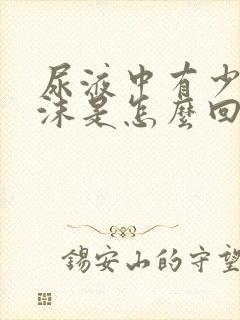 尿液中有少
沫是怎麼回
錫安山的守望